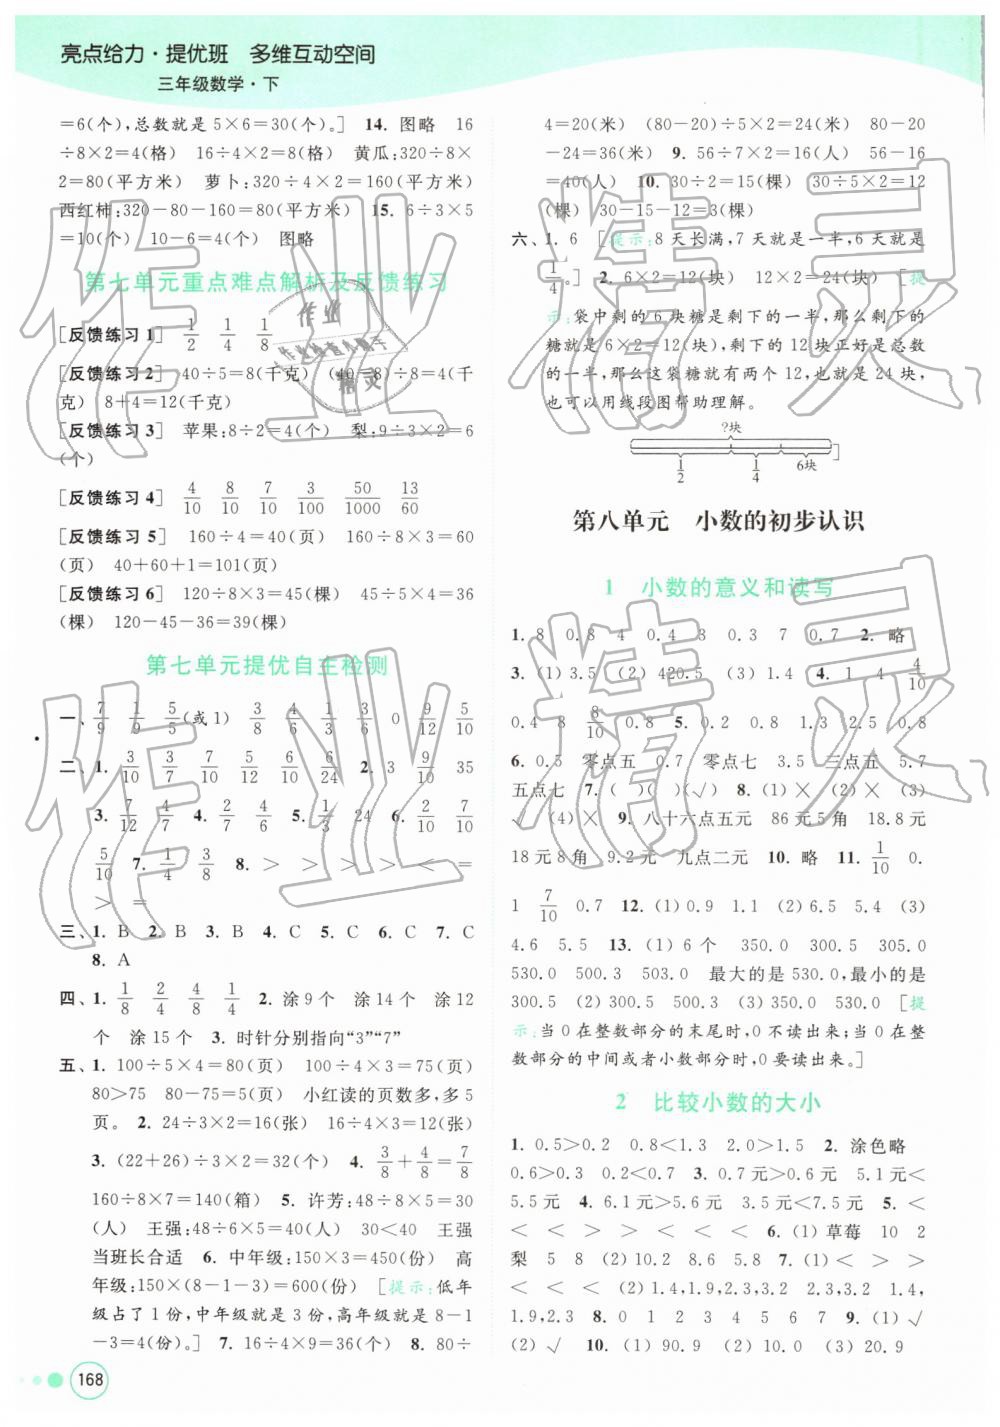 亮点给力·提优班 多维互动空间
三年级数学·下
=6(个),总数就是 5×6=30(个)。] 14. 图略 16
÷8×2=4(格) 16÷4×2=8(格) 黄瓜:320÷8×
2=80(平方米) 萝卜:320÷4×2=160(平方米)
西红柿:320-80-160=80(平方米) 15. 6÷3×5
=10(个) 10-6=4(个) 图略
第七单元重点难点解析及反馈练习
[反馈练习 1] 1/2 1/4 1/8
[反馈练习 2] 40÷5=8(千克) (40-8)÷8=4(千
克) 8+4=12(千克)
[反馈练习 3] 苹果:8÷2=4(个) 梨:9÷3×2=6
(个)
[反馈练习 4] 4/10 8/10 7/10 3/100 50/1000 13/60
[反馈练习 5] 160÷4=40(页) 160÷8×3=60
(页) 40+60+1=101(页)
[反馈练习 6] 120÷8×3=45(棵) 45÷5×4=36
(棵) 120-45-36=39(棵)
第七单元提优自主检测
一、7/9 1/9 5/5(或1) 3/8 4/6 1/3 3/6 0 9/12 5/10
二、1. 3/10 3/7 7/10 5/12 6/10 6/24 2. 3 9/10 35
3. 7/12 4/7 4. 2/8 4/6 5. 1/3 24 6. 2/10 7/10
5/10 7. 1/4 3/8 8. > > > > < =
> =
三、1. B 2. B 3. B 4. C 5. C 6. C 7. C
8. A
四、1. 1/8 2/4 4/8 1/4 2. 涂 9 个 涂 14 个 涂 12
个 涂 15 个 3. 时针分别指向“3”“7”
五、1. 100÷5×4=80(页) 100÷4×3=75(页)
80>75 80-75=5(页) 小红读的页数多,多 5
页。 2. 24÷3×2=16(张) 16÷4×3=12(张)
3. (22+26)÷3×2=32(个) 4. 3/8+4/8=7/8
160÷8×7=140(箱) 5. 许芳:48÷8×5=30
(人) 王强:48÷6×5=40(人) 30<40 王强
当班长合适 6. 中年级:150×3=450(份) 高
年级:150×(8-1-3)=600(份) [提示:低年
级占了 1 份,中年级就是 3 份,高年级就是 8-1
-3=4(份)。] 7. 16÷4×9=36(个) 8. 80÷
4=20(米) (80-20)÷5×2=24(米) 80-20
-24=36(米) 9. 56÷7×2=16(人) 56-16
=40(人) 10. 30÷2=15(棵) 30÷5×2=12
(棵) 30-15-12=3(棵)
六、1. 6 [提示:8 天长满,7 天就是一半,6 天就是
1/4。] 2. 6×2=12(块) 12×2=24(块) [提
示:袋中剩的 6 块糖是剩下的一半,那么剩下的
糖就是 6×2=12(块),剩下的 12 块正好是总数
的一半,那么这袋糖就有两个 12,也就是 24 块,
也可以用线段图帮助理解。
?块
1/2 1/4 6块 ]
第八单元 小数的初步认识
1 小数的意义和读写
1. 8 0.8 4 0.4 3 0.3 7 0.7 2. 略
3. (1) 3.5 (2) 420.5 (3) 4. 1 4 4/10
0.4 8 8/10 0.8 5. 0.2 0.8 1.3 2.5 0.8
6. 0.5 零点五 0.7 零点七 3.5 三点五 5.7
五点七 7. ( )( )(√) 8. (1)× (2)× (3)
√ (4)× 9. 八十六点五元 86 元 5 角 18.8 元
18 元 8 角 9.2 元 九点二元 10. 略 11. 1/10 0.
1 7/10 0.7 12. (1) 0.9 1.1 (2) 6.5 5.4 (3)
4.6 5.5 13. (1) 6 个 350.0 300.5 305.0
530.0 500.3 503.0 最大的是 530.0,最小的是
300.5 (2) 300.5 500.3 (3) 350.0 530.0 [提
示:当 0 在整数部分的末尾时,0 不读出来;当 0 在
整数部分的中间或者小数部分时,0 要读出来。]
2 比较小数的大小
1. 0.5>0.2 0.8<1.3 2.0>1.5 2. 涂色略
0.6>0.3 0.2<0.7 3. 0.7 元>0.6 元 5.1 元<
5.5 元 4. 6.1 元>5.6 元 3.5 元<7.5 元 5. <
< < > > < < < 6. (1) 草莓 10 2
梨 5 8 (2) 10.2 8.6 5.8 7. (1) < > >
< < < (2) 1.4,1.9,2.3,3.2 2.3,3.2 1.4,
1.9,2.3 8. 0 1 2 3 4 5 6 9. (1)√
(2)√ 10. (1) 90.9 (2) 10.8
168